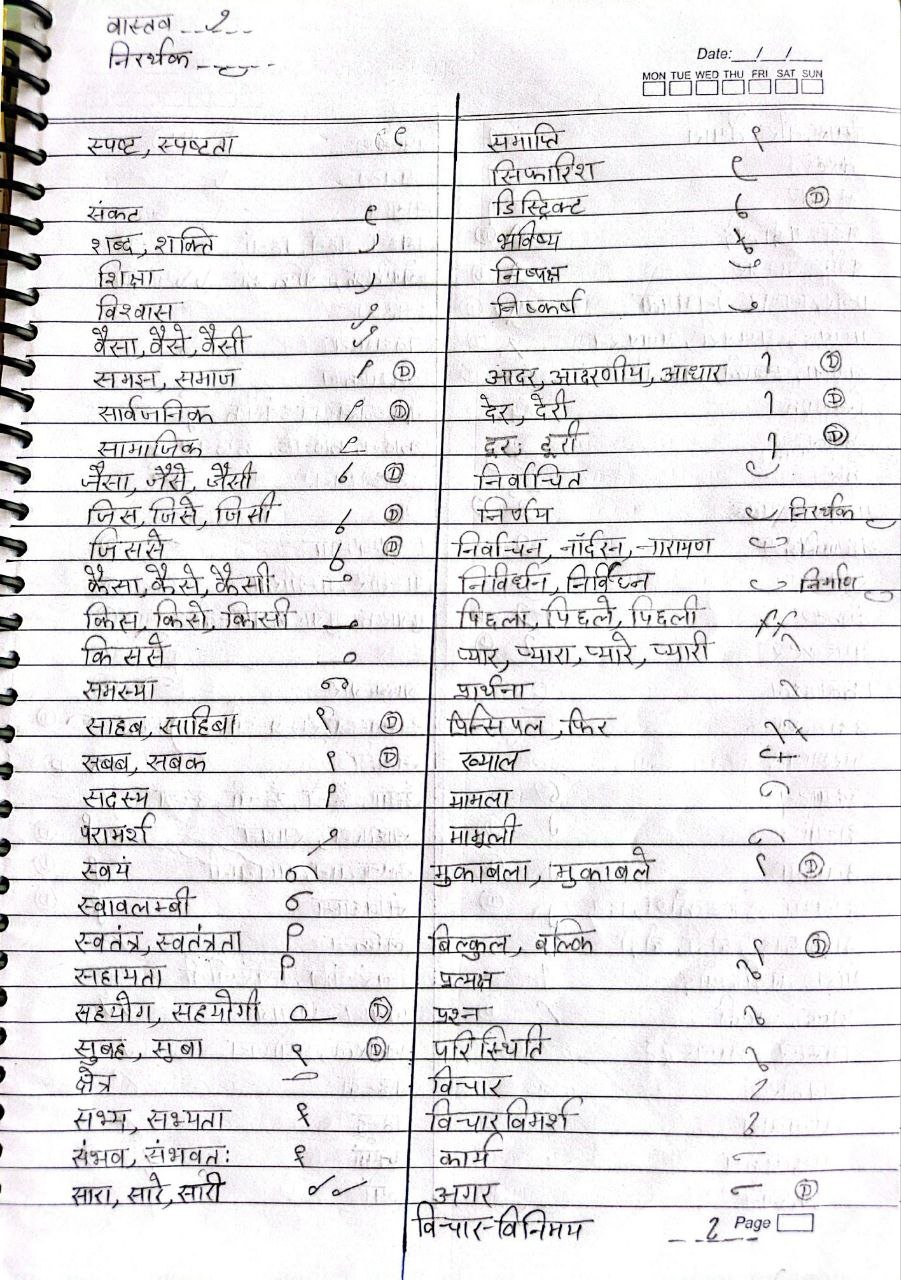 वास्तव
निरर्थक
Date: / /
MON TUE WED THU FRI SAT SUN
स्पष्ट, स्पष्टता
संकट
शब्द, शक्ति
शिक्षा
विश्वास
वैसा, वैसे, वैसी
समझ, समाज D
सार्वजनिक D
सामाजिक
जैसा, जैसे, जैसी D
जिस, जिसे, जिसी D
जिससे D
कैसा, कैसे, कैसी
किस, किसे, किसी
किससे
समस्या
साहब, साहिबा D
सबब, सबक D
सदस्य
परामर्श
स्वयं
स्वावलम्बी
स्वतंत्र, स्वतंत्रता
सहायता
सहयोग, सहयोगी D
सुबह, सुबा D
क्षेत्र
सभ्य, सभ्यता
संभव, संभवतः
सारा, सारे, सारी
समाप्ति
सिफारिश
डिस्ट्रिक्ट D
भविष्य
निष्पक्ष
निष्कर्ष
आदर, आदरणीय, आधार D
देर, देरी D
दूर, दूरी D
निर्वाचित
निर्णय निरर्थक
निर्वाचन, नॉर्दरन, नारायण
निर्विघ्न निर्माण
पिछला, पिछले, पिछली
प्यार, प्यारा, प्यारे, प्यारी
प्रार्थना
प्रिन्सिपल, फिर
ख्याल
मामला
मामूली
मुकाबला, मुकाबले D
बिल्कुल, बल्कि D
प्रत्यक्ष
प्रश्न
परिस्थिति
विचार
विचार विमर्श
कार्य
अगर D
विचार-विनिमय
Page